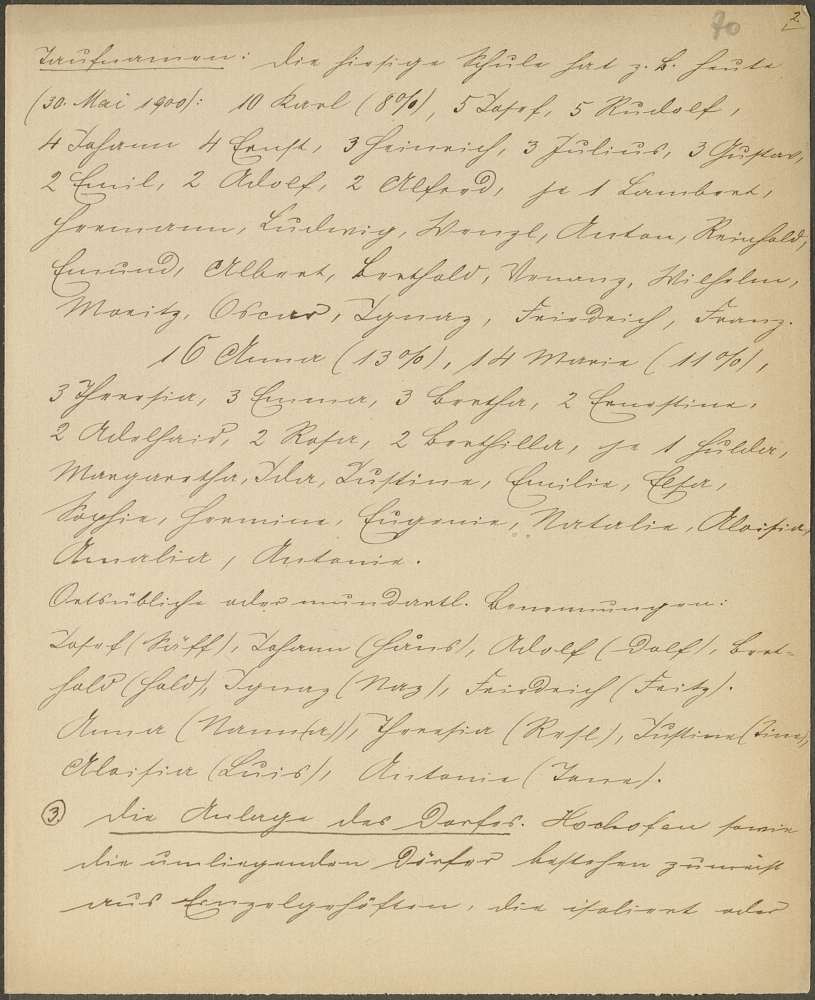 70
2
Taufnamen: Die hiesige Schule hat z. B. heute
(30. Mai 1900): 10 Karl (8%), 5 Josef, 5 Rudolf,
4 Johann 4 Ernst, 3 Heinrich, 3 Julius, 3 Gustav,
2 Emil, 2 Adolf, 2 Alfred, je 1 Lambert,
Hermann, Ludwig, Wenzl, Anton, Reinhold,
Emund, Albert, Berthold, Venanz, Wilhelm,
Moritz, Oscar, Ignaz, Friedrich, Franz.
16 Anna (13%), 14 Marie (11%),
3 Theresia, 3 Emma, 3 Bertha, 2 Ernestine,
2 Adelhaid, 2 Rosa, 2 Berthilla, je 1 Hulda,
Margaretha, Ida, Justine, Emilie, Elsa,
Sophie, Hermine, Eugenie, Natalie, Aloisia,
Amalia, Antonie.
Ortsübliche oder mundartl. Benennungen:
Josef (Säff), Johann (Håns), Adolf (Dolf), Bert-
hold (Hold), Ignaz (Naz), Friedrich (Fritz).
Anna (Nann(a)), Theresia (Resl), Justine (Tine),
Aloisia (Luis), Antonie (Tone).
3. Die Anlage des Dorfes. Hochofen sowie
die umliegenden Dörfer bestehen zumeist
aus Einzelgehöften, die isoliert oder